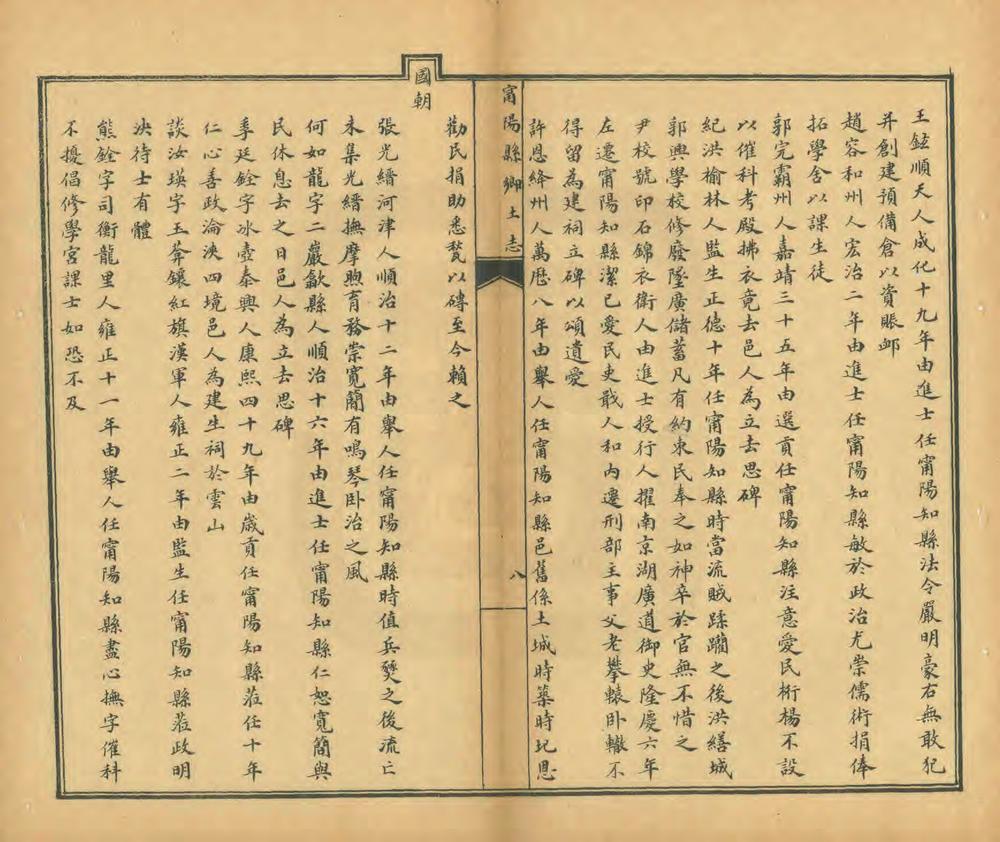 王鉉順天人成化十九年由進士任甯陽知縣法令嚴明豪右無敢犯
并創建預備倉以資賑卹
趙容和州人宏治二年由進士任甯陽知縣敏於政治尤崇儒術捐俸
拓學舍以課生徒
郭完霸州人嘉靖三十五年由選貢任甯陽知縣注意愛民桁楊不設
以催科考殿拂衣竟去邑人為立去思碑
紀洪榆林人監生正德十年任甯陽知縣時當流賊蹂躪之後洪繕城
郭興學校修廢墜廣儲蓄凡有約束民奉之如神卒於官無不惜之
尹校號印石錦衣衛人由進士授行人擢南京湖廣道御史隆慶六年
左遷甯陽知縣潔己愛民吏戢人和內遷刑部主事父老攀轅卧轍不
得留為建祠立碑以頌遺愛
許恩絳州人萬歷八年由舉人任甯陽知縣邑舊係土城時築時圮恩
甯陽縣鄉土志
八
勸民捐助悉甃以磚至今賴之
國朝
張光縉河津人順治十二年由舉人任甯陽知縣時值兵燹之後流亡
未集光縉撫摩煦育務崇寬簡有鳴琴卧治之風
何如龍字二巖歙縣人順治十六年由進士任甯陽知縣仁恕寬簡與
民休息去之日邑人為立去思碑
季廷銓字冰壺泰興人康熙四十九年由歲貢任甯陽知縣蒞任十年
仁心善政淪浹四境邑人為建生祠於雲山
談汝瑛字玉莾鑲紅旗漢軍人雍正二年由監生任甯陽知縣蒞政明
決待士有體
熊銓字司衡龍里人雍正十一年由舉人任甯陽知縣盡心撫字催科
不擾倡修學宮課士如恐不及